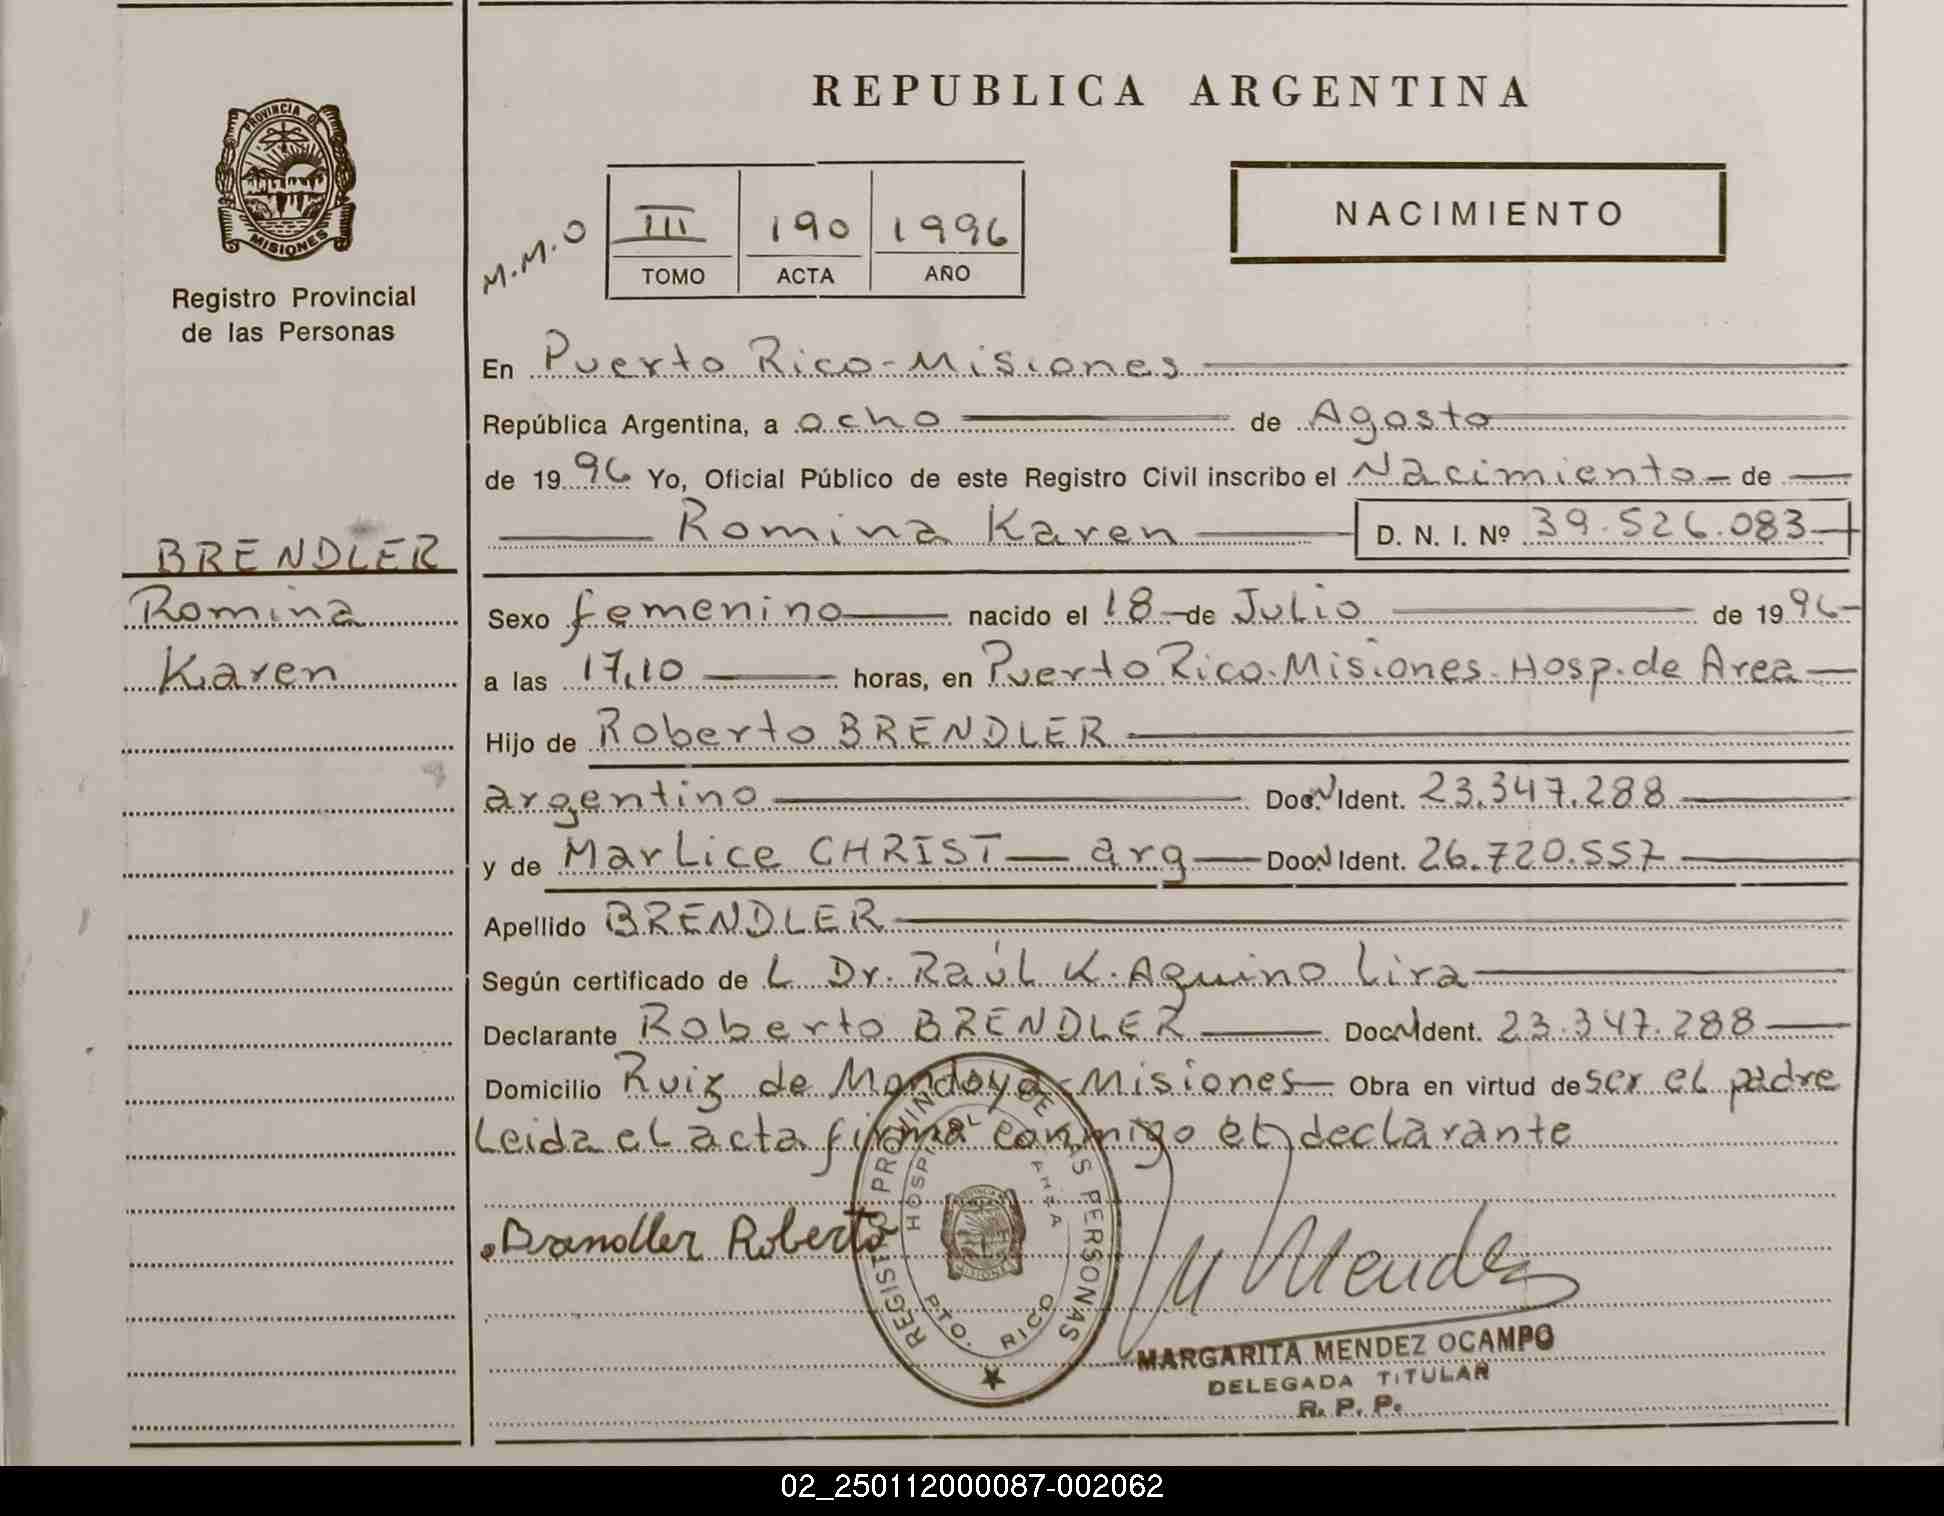 REPUBLICA ARGENTINA
PROVINCIA DE
MISIONES
Registro Provincial
de las Personas
NACIMIENTO
M.M.O
III 190 1996
TOMO ACTA AÑO
En Puerto Rico - Misiones
República Argentina, a ocho de Agosto
de 1996 Yo, Oficial Público de este Registro Civil inscribo el Nacimiento - de
Romina Karen D. N. I. Nº 39.526.083
BRENDLER
Romina
Karen
Sexo femenino nacido el 18 - de Julio de 1996 -
a las 17,10 horas, en Puerto Rico. Misiones. Hosp. de Area
Hijo de Roberto BRENDLER
argentino Doc. N Ident. 23.347.288
y de MarLice CHRIST arg Doc. N Ident. 26.720.557
Apellido BRENDLER
Según certificado de L Dr. Raúl K. Aquino Lira
Declarante Roberto BRENDLER Doc. N Ident. 23.347.288
Domicilio Ruiz de Montoya - Misiones Obra en virtud de ser el padre
Leida el acta firma conmigo el declarante
REGISTRO PROVINCIAL DE LAS PERSONAS
PTO. RICO
Brendler Roberto
M Mendez
MARGARITA MENDEZ OCAMPO
DELEGADA TITULAR
R. P. P.
02_250112000087-002062